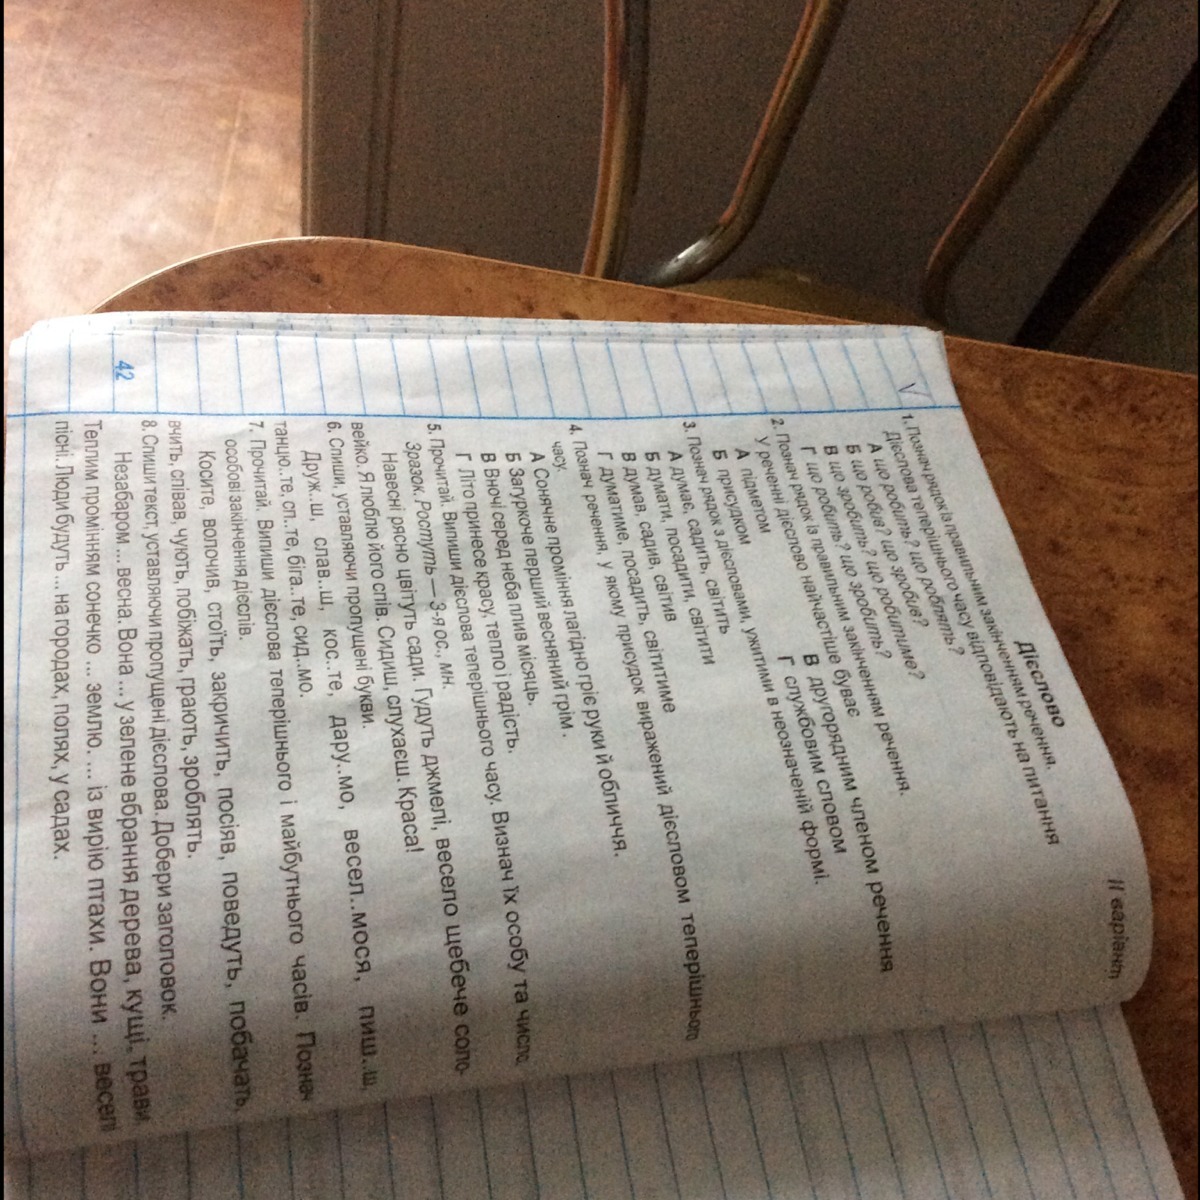 ІІ варіант
Дієслово
1. Познач рядок із правильним закінченням речення.
Дієслова теперішнього часу відповідають на питання
А що робить? що роблять?
Б що робив? що зробив?
В що зробить? що робитиме?
Г що робить? що зробить?
2. Познач рядок із правильним закінченням речення.
У реченні дієслово найчастіше буває
А підметом В другорядним членом речення
Б присудком Г службовим словом
3. Познач рядок з дієсловами, ужитими в неозначеній формі.
А думає, садить, світить
Б думати, посадити, світити
В думав, садив, світив
Г думатиме, посадить, світитиме
4. Познач речення, у якому присудок виражений дієсловом теперішнього
часу.
А Сонячне проміння лагідно гріє руки й обличчя.
Б Загуркоче перший весняний грім.
В Вночі серед неба плив місяць.
Г Літо принесе красу, тепло і радість.
5. Прочитай. Випиши дієслова теперішнього часу. Визнач їх особу та число.
Зразок. Ростуть — 3-я ос., мн.
Навесні рясно цвітуть сади. Гудуть джмелі, весело щебече соло-
вейко. Я люблю його спів. Сидиш, слухаєш. Краса!
6. Спиши, уставляючи пропущені букви.
Друж..ш, слав..ш, кос..те, дару..мо, весел..мося, пиш..ш,
танцю..те, сп..те, біга..те, сид..мо.
7. Прочитай. Випиши дієслова теперішнього і майбутнього часів. Познач
особові закінчення дієслів.
Косите, волочив, стоїть, закричить, посіяв, поведуть, побачать,
вчить, співав, чують, побіжать, грають, зроблять.
8. Спиши текст, уставляючи пропущені дієслова. Добери заголовок.
Незабаром ... весна. Вона ... у зелене вбрання дерева, кущі, трави.
Теплим промінням сонечко ... землю. ... із вирію птахи. Вони ... веселі
пісні. Люди будуть ... на городах, полях, у садах.
42